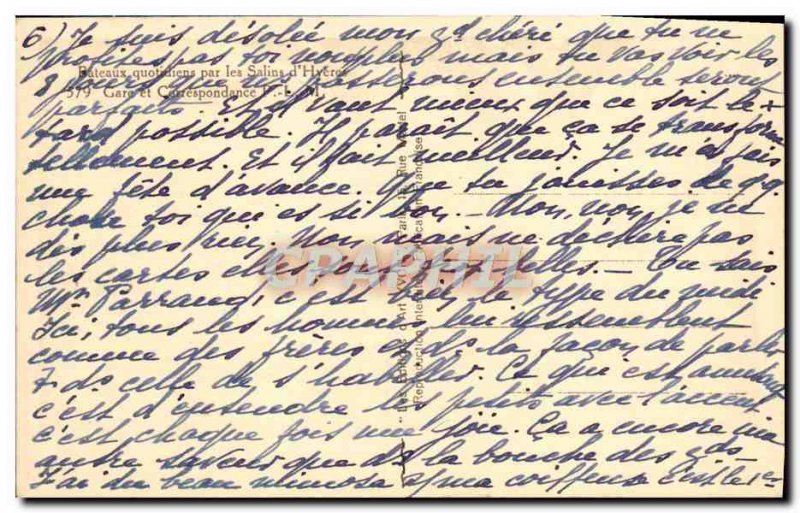 6) Je suis désolée mon gd chéri que tu ne
profites pas toi non plus mais tu vas voir les
Bateaux quotidiens par les Salins d'Hyères
8 jours que ns passerons ensemble seront
579 Gare et Correspondance P.-L.-M.
parfaits. Et il vaut mieux que ce soit le +
tard possible. Il paraît que ça se transforme
tellement. Et il fait meilleur. Je m'en fais
une fête d'avance. Que tu jouisses de qq.
chose toi qui es si bon. — Non, non, je ne
dis plus rien. Non mais ne déchire pas
les cartes elles sont trop belles. — Tu sais
Mr Parraud, c'est bien le type du midi
Ici, tous les hommes lui ressemblent
comme des frères ds la façon de parler
+ ds celle de s'habiller. Ce qui est amusant
c'est d'entendre les petits avec l'accent
c'est chaque fois une joie. Ça a encore une
autre saveur que ds la bouche des gds.
J'ai du beau mimosa ma coiffeuse c'est le
CPAPHIL
Les Editions d'Art Paris, 15, Rue
Reproduction Interdite Fabrication Française